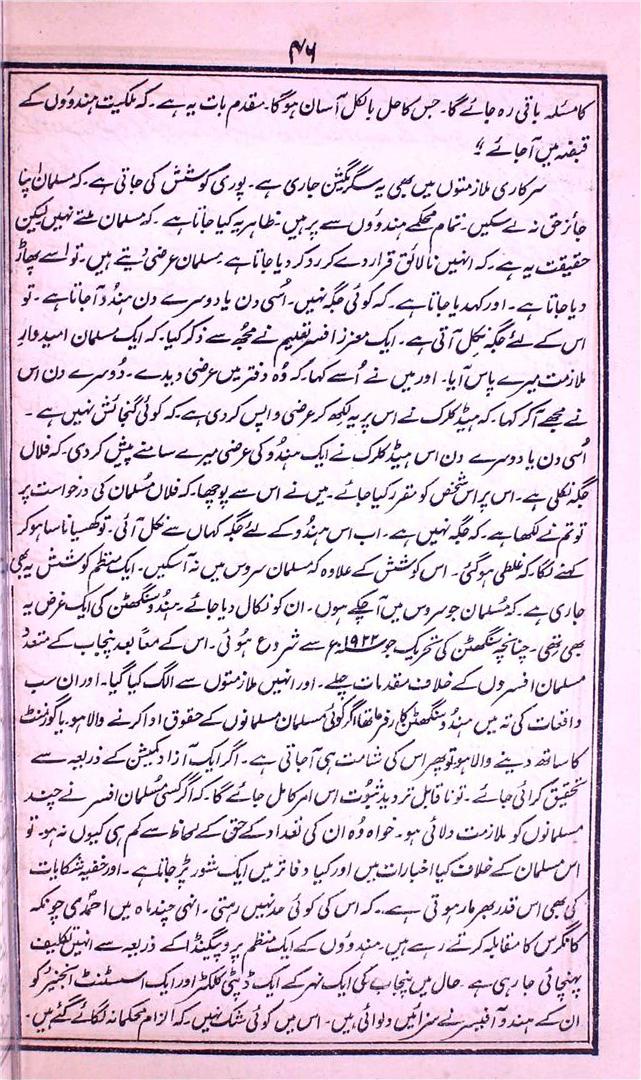 ۴۶
کا مسئلہ باقی رہ جائے گا۔ جس کا حل بالکل آسان ہوگا۔ مقدم بات یہ ہے۔ کہ ملکیت ہندوؤں کے
قبضہ میں آجائے ؛"
سرکاری ملازمتوں میں بھی یہ سگریگیشن جاری ہے۔ پوری کوشش کی جاتی ہے۔ کہ مسلمان اپنا
جائز حق نہ لے سکیں۔ تمام محکمے ہندوؤں سے پر ہیں۔ ظاہر یہ کیا جاتا ہے۔ کہ مسلمان ملتے نہیں لیکن
حقیقت یہ ہے۔ کہ انہیں نالائق قرار دے کر رد کر دیا جاتا ہے مسلمان عرضی دیتے ہیں۔ تو اسے پھاڑ
دیا جاتا ہے۔ اور کہدیا جاتا ہے۔ کہ کوئی جگہ نہیں۔ اُسی دن یا دوسرے دن ہندو آجاتا ہے۔ تو
اس کے لئے جگہ نکل آتی ہے۔ ایک معزز افسر تعلیم نے مجھ سے ذکر کیا۔ کہ ایک مسلمان امیدوارِ
ملازمت میرے پاس آیا۔ اور میں نے اُسے کہا۔ کہ وُہ دفتر میں عرضی دیدے۔ دُوسرے دن اس
نے مجھے آکر کہا۔ کہ ہیڈ کلرک نے اس پر یہ لکھ کر عرضی واپس کر دی ہے۔ کہ کوئی گنجائش نہیں ہے۔
اُسی دن یا دوسرے دن اس ہیڈ کلرک نے ایک ہندو کی عرضی میرے سامنے پیش کر دی۔ کہ فلاں
جگہ نکلی ہے۔ اس پر اس شخص کو مقرر کیا جائے۔ میں نے اس سے پوچھا۔ کہ فلاں مُسلمان کی درخواست پر
تو تم نے لکھا ہے۔ کہ جگہ نہیں ہے۔ اب اس ہندو کے لئے جگہ کہاں سے نکل آئی۔ تو کھسیانا سا ہو کر
کہنے لگا۔ کہ غلطی ہو گئی۔ اس کوشش کے علاوہ کہ مسلمان سروس میں نہ آسکیں۔ ایک منظم کوشش یہ بھی
جاری ہے۔ کہ مُسلمان جو سروس میں آچکے ہوں۔ ان کو نکال دیا جائے۔ ہندو سنگھٹن کی ایک غرض یہ
بھی تھی۔ چنانچہ سنگھٹن کی تحریک جو ۱۹۲۲ء سے شروع ہوئی۔ اس کے معاً بعد پنجاب کے متعدد
مسلمان افسروں کے خلاف مقدمات چلے۔ اور انہیں ملازمتوں سے الگ کیا گیا۔ اور ان سب
واقعات کی تہ میں ہندو سنگھٹن کار فرما تھا اگر کوئی مسلمان مسلمانوں کے حقوق ادا کرنے والا ہو۔ یا گورنمنٹ
کا ساتھ دینے والا ہو تو پھر اس کی شامت ہی آجاتی ہے۔ اگر ایک آزاد کمیشن کے ذریعہ سے
تحقیق کرائی جائے۔ تو ناقابل تردید ثبوت اس امر کا مل جائے گا۔ کہ اگر کسی مُسلمان افسر نے چند
مسلمانوں کو ملازمت دلائی ہو۔ خواہ وُہ ان کی تعداد کے حق کے لحاظ سے کم ہی کیوں نہ ہو۔ تو
اس مسلمان کے خلاف کیا اخبارات میں اور کیا دفاتر میں ایک شور پڑ جاتا ہے۔ اور خفیہ شکایات
کی بھی اس قدر بھرمار ہوتی ہے۔ کہ اس کی کوئی حد نہیں رہتی۔ انہی چند ماہ میں احمدی چونکہ
کانگرس کا مقابلہ کرتے رہے ہیں۔ ہندوؤں کے ایک منظم پروپیگنڈا کے ذریعہ سے انہیں تکلیف
پہنچائی جا رہی ہے۔ حال میں پنجاب کی ایک نہر کے ایک ڈپٹی کلکٹر اور ایک اسسٹنٹ انجنیئر کو
ان کے ہندو آفیسر نے سزائیں دلوائی ہیں۔ اس میں کوئی شک نہیں۔ کہ الزام محکمانہ لگائے گئے ہیں۔